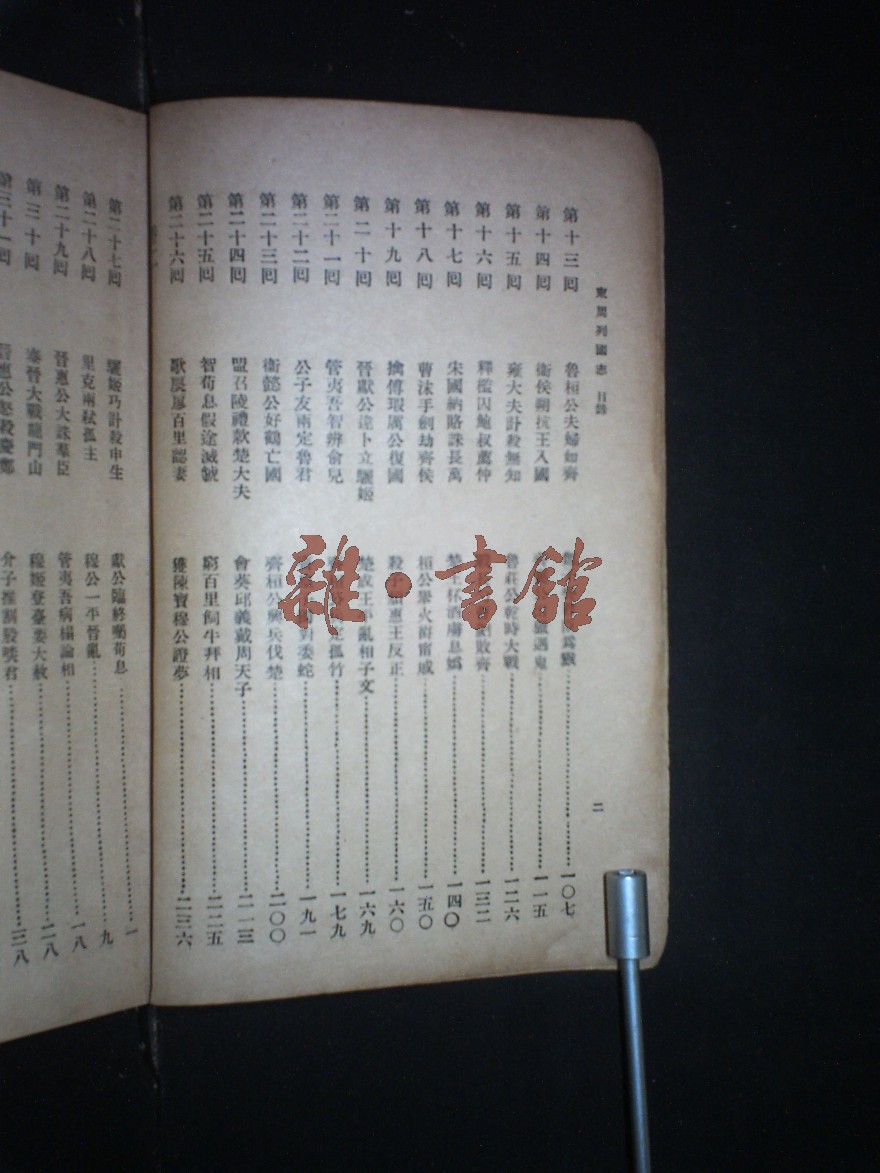 東周列國志 目錄
二
第十三回 魯桓公夫婦如齊 爲戮 一〇七
第十四回 衞侯朔抗王入國 遇鬼 一一五
第十五回 雍大夫計殺無知 魯莊公乾時大戰 一二六
第十六回 釋檻囚鮑叔薦仲 敗齊 一三二
第十七回 宋國納賂誅長萬 楚王杯酒虜息嬀 一四〇
第十八回 曹沫手劍劫齊侯 桓公舉火爵甯戚 一五〇
第十九回 擒傅瑕厲公復國 殺子頹惠王反正 一六〇
第二十回 晉獻公違卜立驪姬 楚成王平亂相子文 一六九
第二十一回 管夷吾智辨俞兒 定孤竹 一七九
第二十二回 公子友兩定魯君 對委蛇 一九一
第二十三回 衞懿公好鶴亡國 齊桓公興兵伐楚 二〇〇
第二十四回 盟召陵禮款楚大夫 會葵邱義戴周天子 二一三
第二十五回 智荀息假途滅虢 窮百里飼牛拜相 二二五
第二十六回 歌扊扅百里認妻 獲陳寶穆公證夢 二三六
第二十七回 驪姬巧計殺申生 獻公臨終囑荀息 一
第二十八回 里克兩弒孤主 穆公一平晉亂 九
第二十九回 晉惠公大誅羣臣 管夷吾病榻論相 一八
第三十回 秦晉大戰龍門山 穆姬登臺要大赦 二八
第三十一回 晉惠公怒殺慶鄭 介子推割股啖君 三八
雜·書館